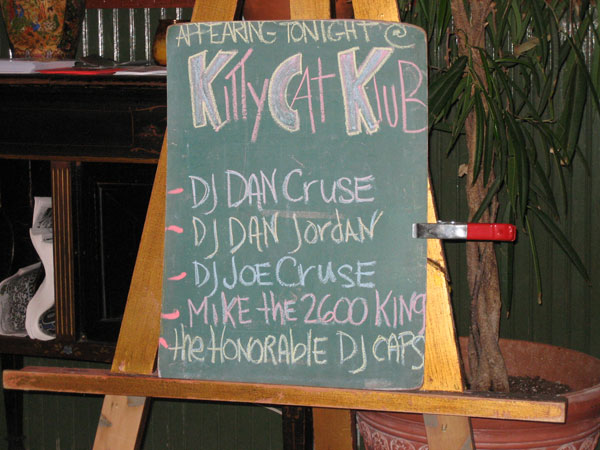 APPEARING TONIGHT @
KITTY CAT KLUB
- DJ DAN CRUSE
- DJ DAN JORDAN
- DJ JOE CRUSE
- MIKE the 2600 KING
- the HONORABLE DJ CAPS